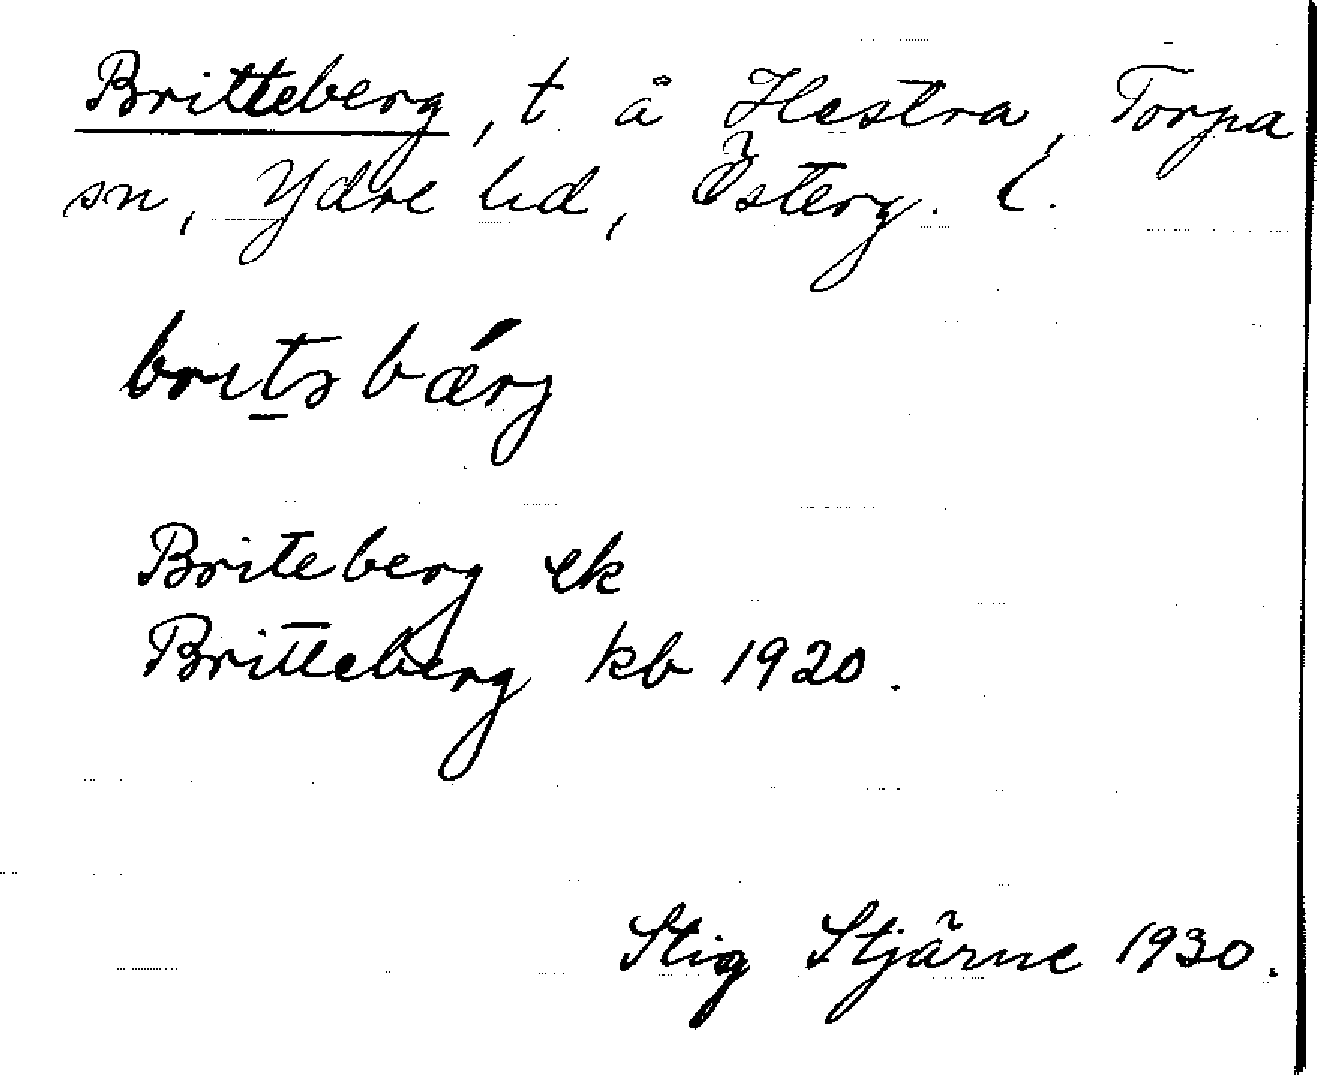 Britteberg, t å Hestra, Torpa
sn, Ydre hd, Österg. l.
britsbærj
Briteberg ek
Britteberg kb 1920.
Stig Stjärne 1930.